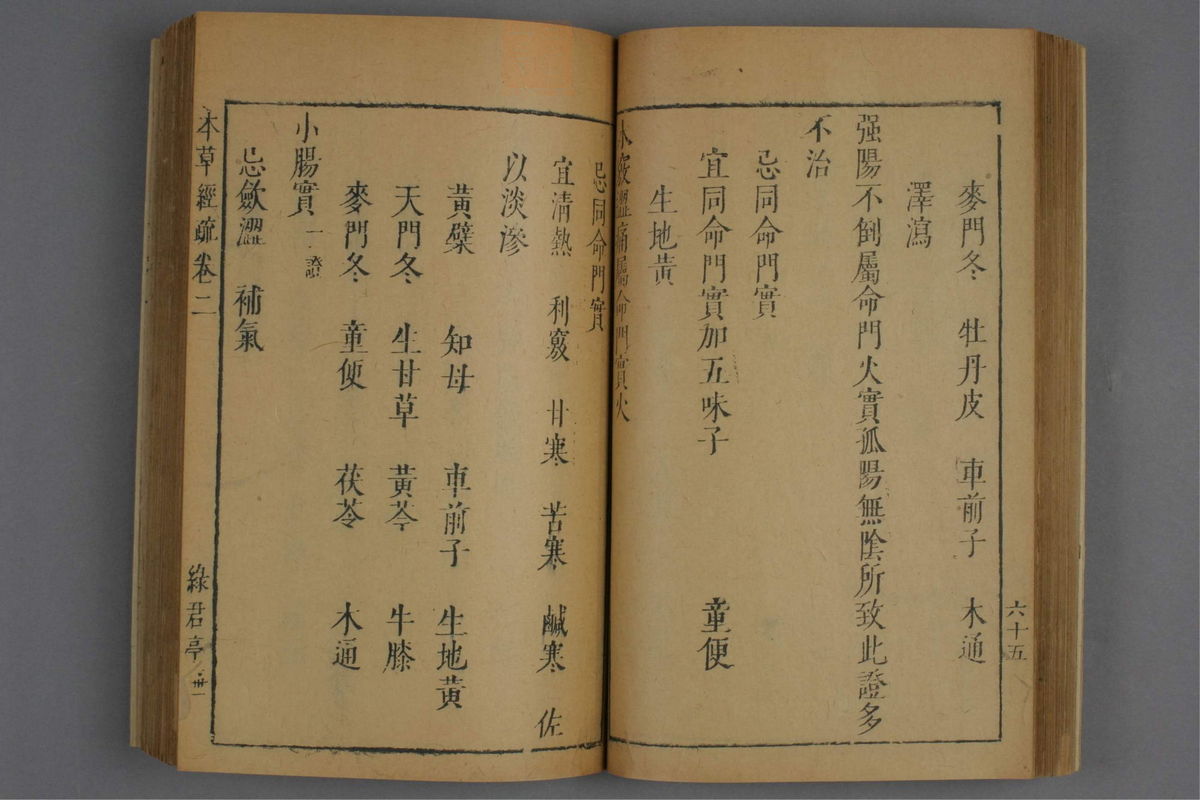 麥門冬 牡丹皮 車前子 木通
澤瀉
强陽不倒屬命門火實孤陽無陰所致此證多
不治
忌同命門實
宜同命門實加五味子 童便
生地黃
水竅澀痛屬命門實火
六十五
忌同命門實
宜清熱 利竅 甘寒 苦寒 鹹寒 佐
以淡滲
黃蘗 知母 車前子 生地黃
天門冬 生甘草 黃芩 牛膝
麥門冬 童便 茯苓 木通
小腸實一證
忌斂澀 補氣
本草經疏卷二 綠君亭